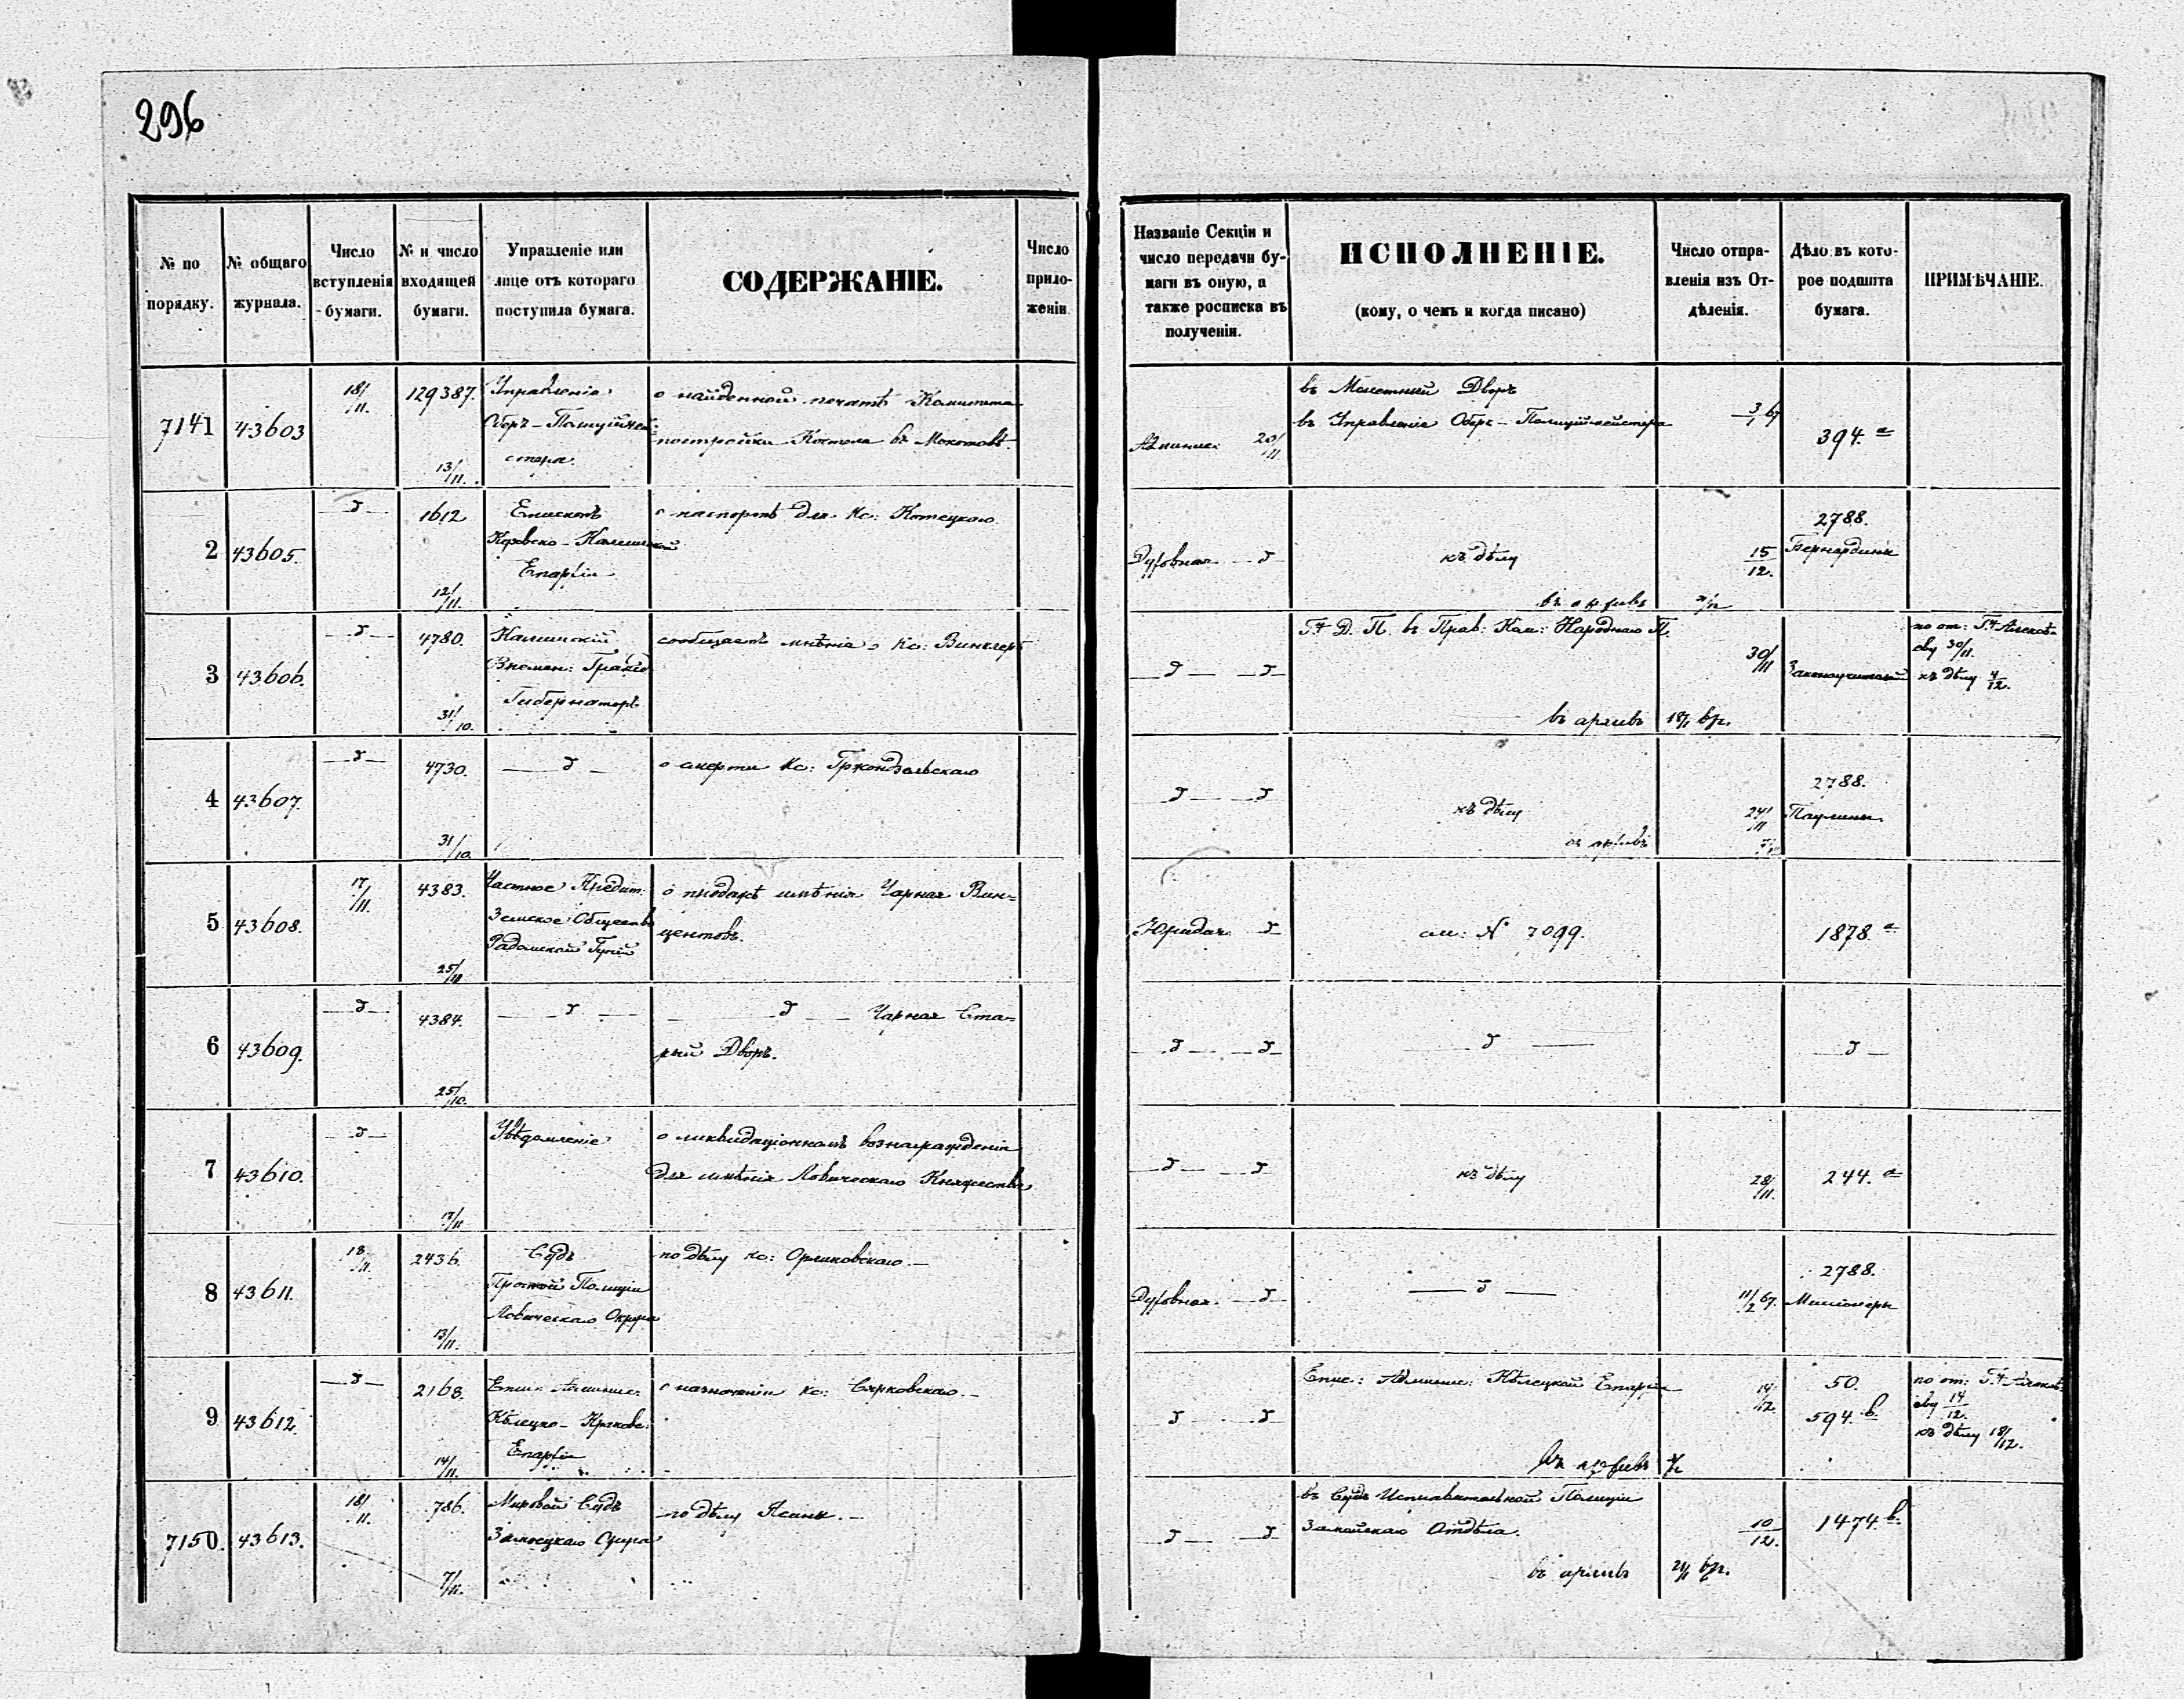 296
№ по порядку.
№ общаго журнала.
Число вступленія бумаги.
№ и число входящей бумаги.
Управленіе или лице отъ котораго поступила бумага.
СОДЕРЖАНІЕ.
Число приложеній
Названіе Секціи и число передачи бумаги въ оную, а также росписка въ полученіи.
ИСПОЛНЕНІЕ.
(кому, о чемъ и когда писано)
Число отправленія изъ Отдѣленія.
Дѣло въ которое подшита бумага.
ПРИМѢЧАНІЕ.
7141 43603 18/11. 129387. 13/11.
Управленіе
Оберъ-Полиціймей-
стера.
о найденной печати Комитета
постройки Костела въ Мокотовѣ
Админис. 20/11
въ Монетный Дворъ
въ Управленіе Оберъ-Полиціймейстера
394. а
2 43605. 1612 12/11.
Епископъ
Куявско-Калишской
Епархіи
о паспортѣ для Кс: Котецкаго
Духовная
къ дѣлу
въ архивъ
15/12.
2788.
Бернардины
3 43606. 4780. 31/10.
Калишскій
Военный Губернаторъ
сообщаетъ мнѣніе о Кс: Винклеръ
Г. Д. П. въ Прав: Ком: Народнаго П.
въ архивъ
30/11
къ дѣлу 4/12.
4 43607. 4730. 31/10.
о смерти Кс: Гржондзельскаго
къ дѣлу
въ архивъ
24/11
2788.
Паулины.
5 43608. 17/11. 4383.
Частное Кредит.
Земское Общество
Радомской Губ
о продажѣ имѣнія Чарная Вин-
центовъ.
Юридич.
см: № 7099.
1878. а
6 43609. 4384. 25/10.
Чарная Ста-
рый Дворъ.
7 43610. 17/11
Увѣдомленіе
о ликвидаціонномъ вознагражденіи
для имѣнія Ловическаго Княжества
къ дѣлу
28/11.
244. а
8 43611. 18/11. 2436. 13/11.
Судъ
Простой Полиціи
Ловическаго Округа
по дѣлу кс: Орликовскаго.—
Духовная.
11/2 67.
2788.
Миссіонеры
9 43612. 2168. 14/11.
Епис. Админис.
Кѣлецко-Краковс.
Епархіи
о назначеніи кс: Сярковскаго.—
Епис: Админис: Кѣлецкой Епархіи
въ архивъ
14/12.
50.
594. b.
къ дѣлу 18/12.
7150. 43613. 18/11. 786. 7/11.
Мировой Судъ
Замосцкаго Округа
по дѣлу Ясины.—
въ Судъ Исправительной Полиціи
Замойскаго Отдѣла.
въ архивъ
10/12.
1474. b.